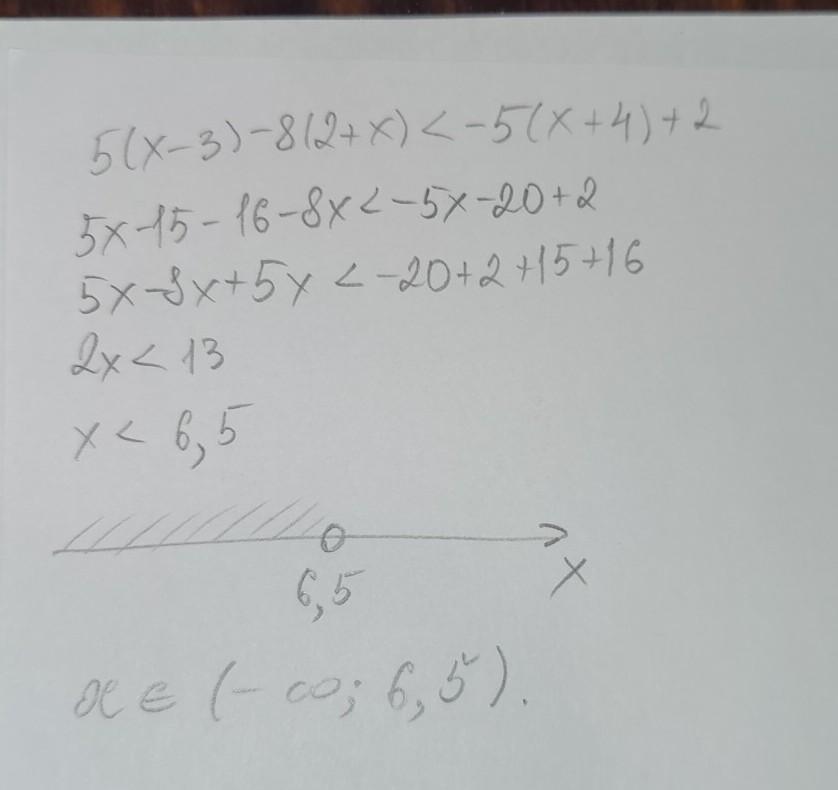 5(x-3)-8(2+x)<-5(x+4)+2
5x-15-16-8x<-5x-20+2
5x-8x+5x<-20+2+15+16
2x<13
x<6,5
6,5
x
x∈(-∞; 6,5).